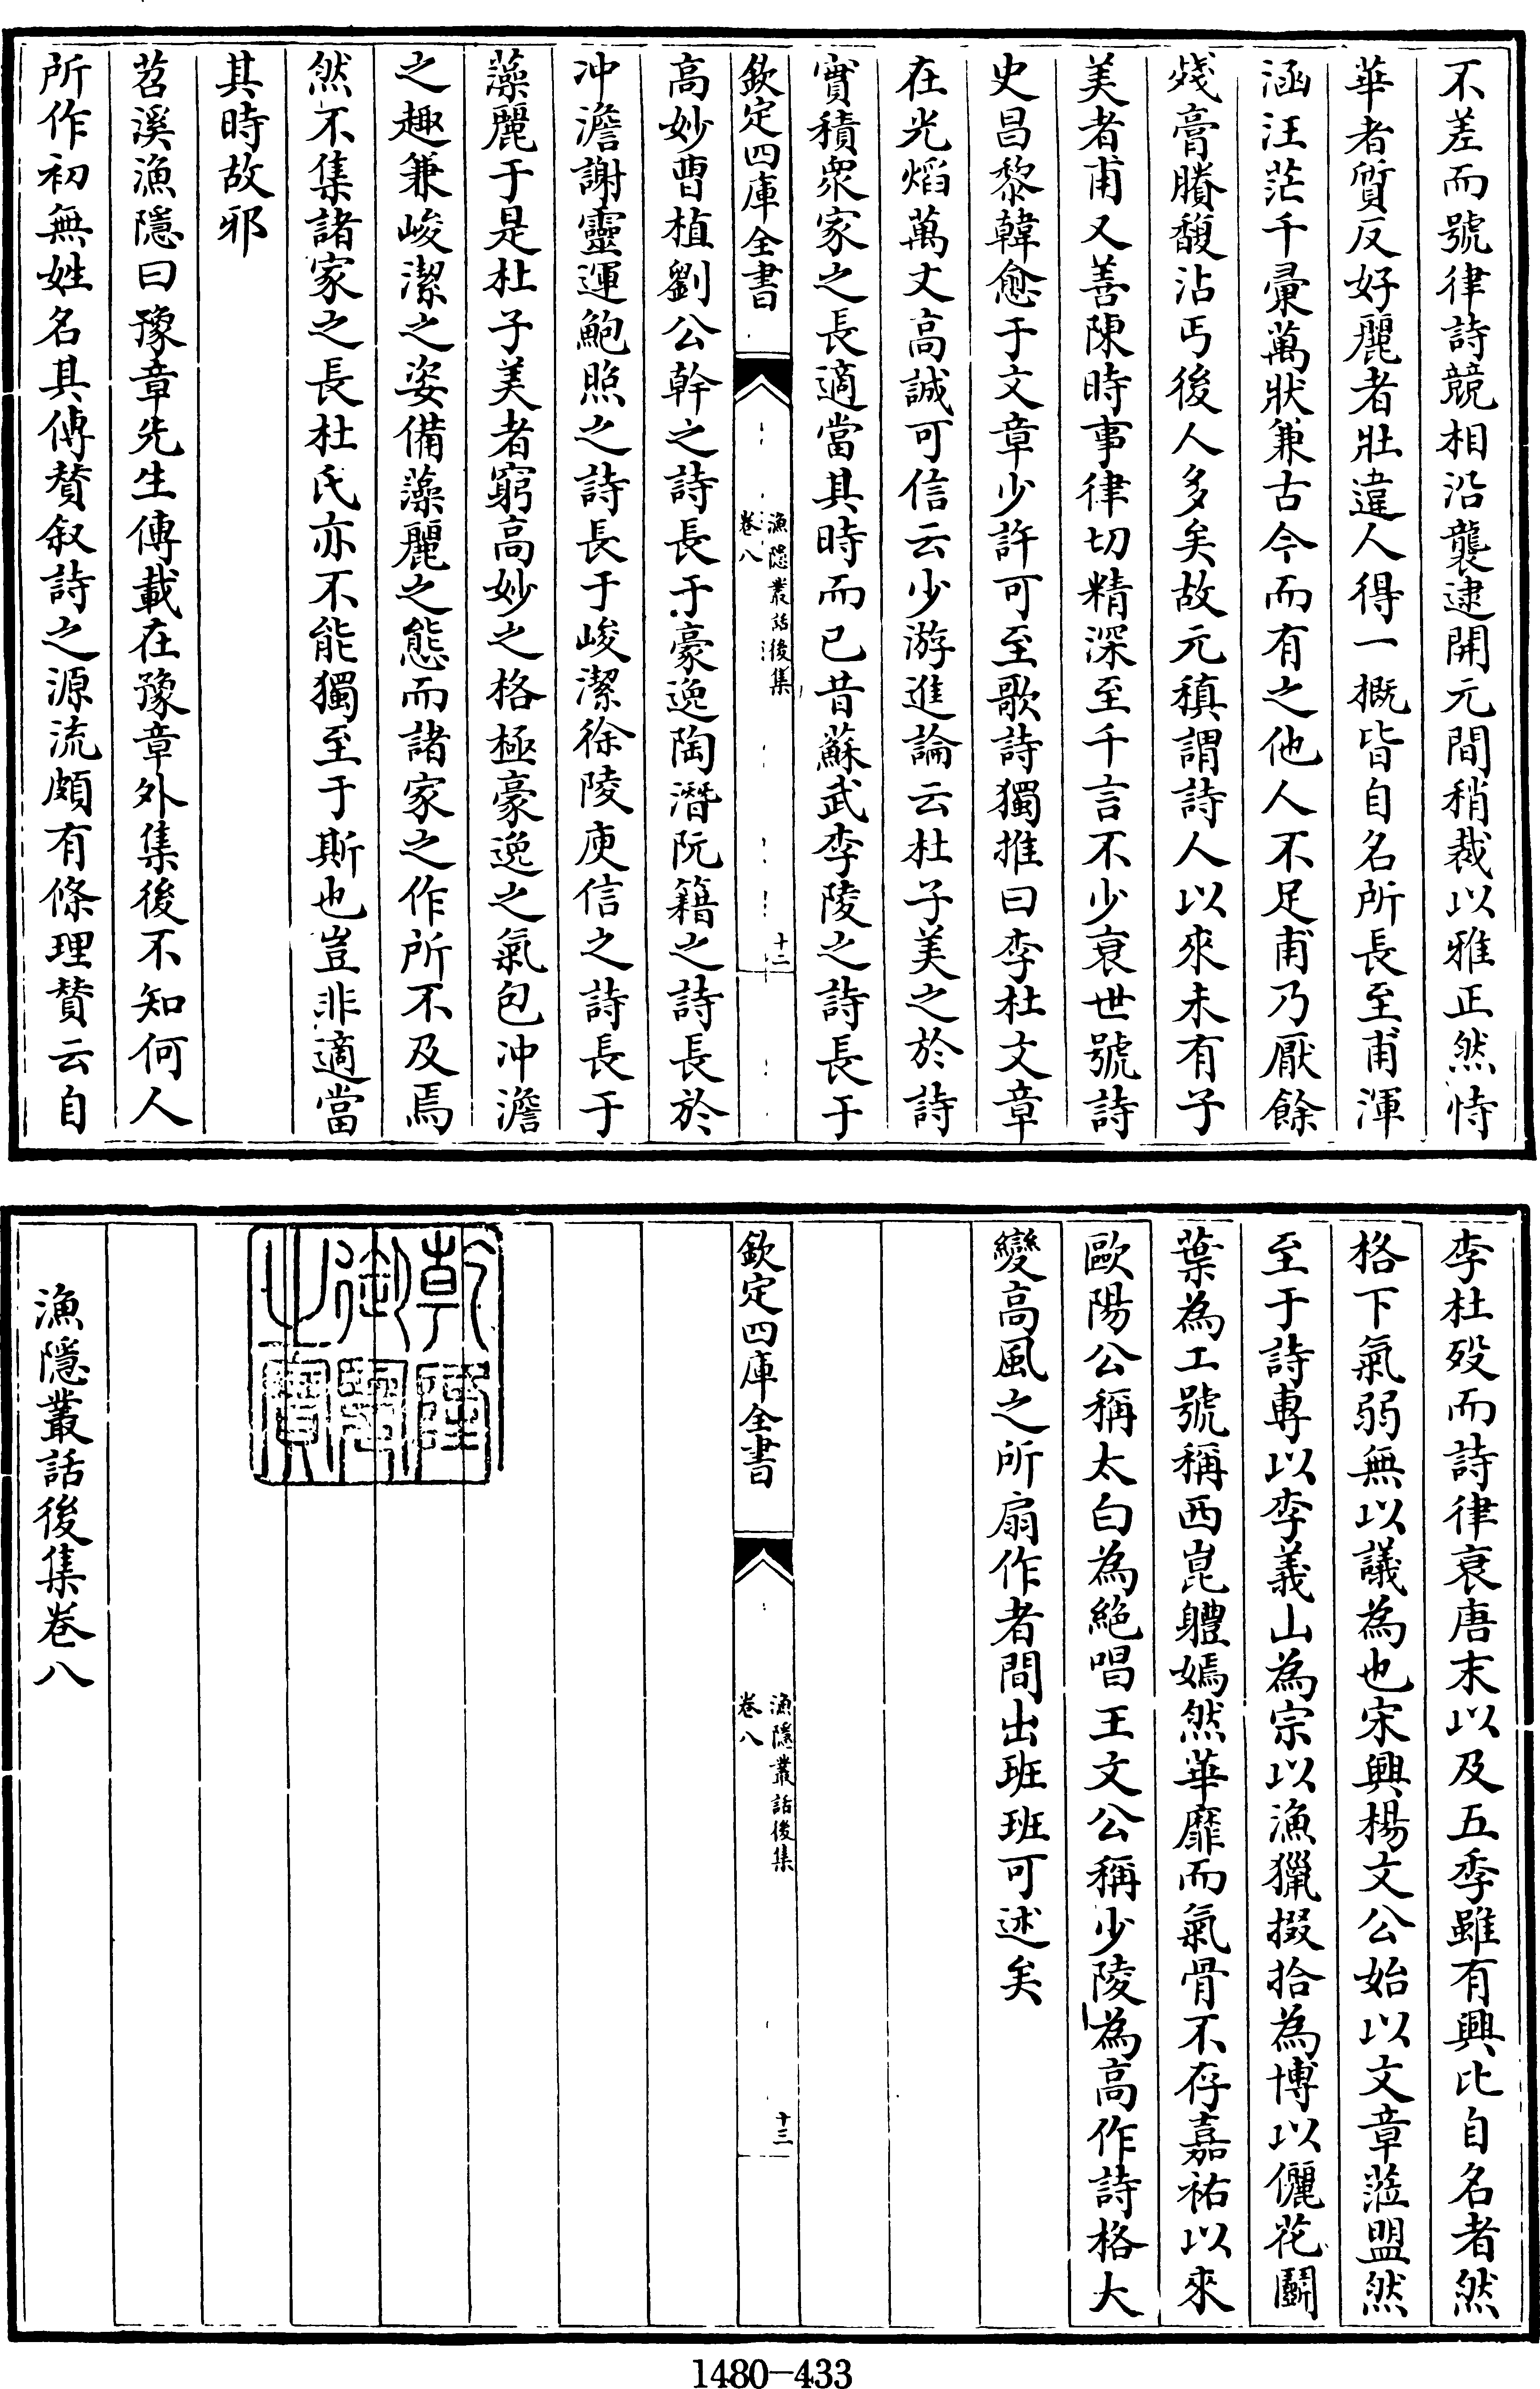 不差而號律詩競相沿襲逮開元間稍裁以雅正然恃
華者質反好麗者壯違人得一概皆自名所長至甫渾
涵汪茫千彚萬狀兼古今而有之他人不足甫乃厭餘
殘膏賸馥沾丐後人多矣故元稹謂詩人以來未有子
美者甫又善陳時事律切精深至千言不少衰世號詩
史昌黎韓愈于文章少許可至歌詩獨推曰李杜文章
在光熖萬丈高誠可信云少游進論云杜子美之於詩
實積衆家之長適當其時而已昔蘇武李陵之詩長于
欽定四庫全書
漁隱叢話後集
卷八
十二
高妙曹植劉公幹之詩長于豪逸陶潛阮籍之詩長於
冲澹謝靈運鮑照之詩長于峻潔徐陵庾信之詩長于
藻麗于是杜子美者窮高妙之格極豪逸之氣包冲澹
之趣兼峻潔之姿備藻麗之態而諸家之作所不及焉
然不集諸家之長杜氏亦不能獨至于斯也豈非適當
其時故邪
苕溪漁隱曰豫章先生傳載在豫章外集後不知何人
所作初無姓名其傳贊叙詩之源流頗有條理贊云自
李杜歿而詩律衰唐末以及五季雖有興比自名者然
格下氣弱無以議為也宋興楊文公始以文章蒞盟然
至于詩専以李義山為宗以漁獵掇拾為博以儷花鬭
葉為工號稱西崑軆嫣然華靡而氣骨不存嘉祐以來
歐陽公稱太白為絶唱王文公稱少陵為高作詩格大
變高風之所扇作者間出班班可述矣
欽定四庫全書
漁隱叢話後集
卷八
十三
乾隆
御覽
之寶
漁隱叢話後集卷八
1480-433